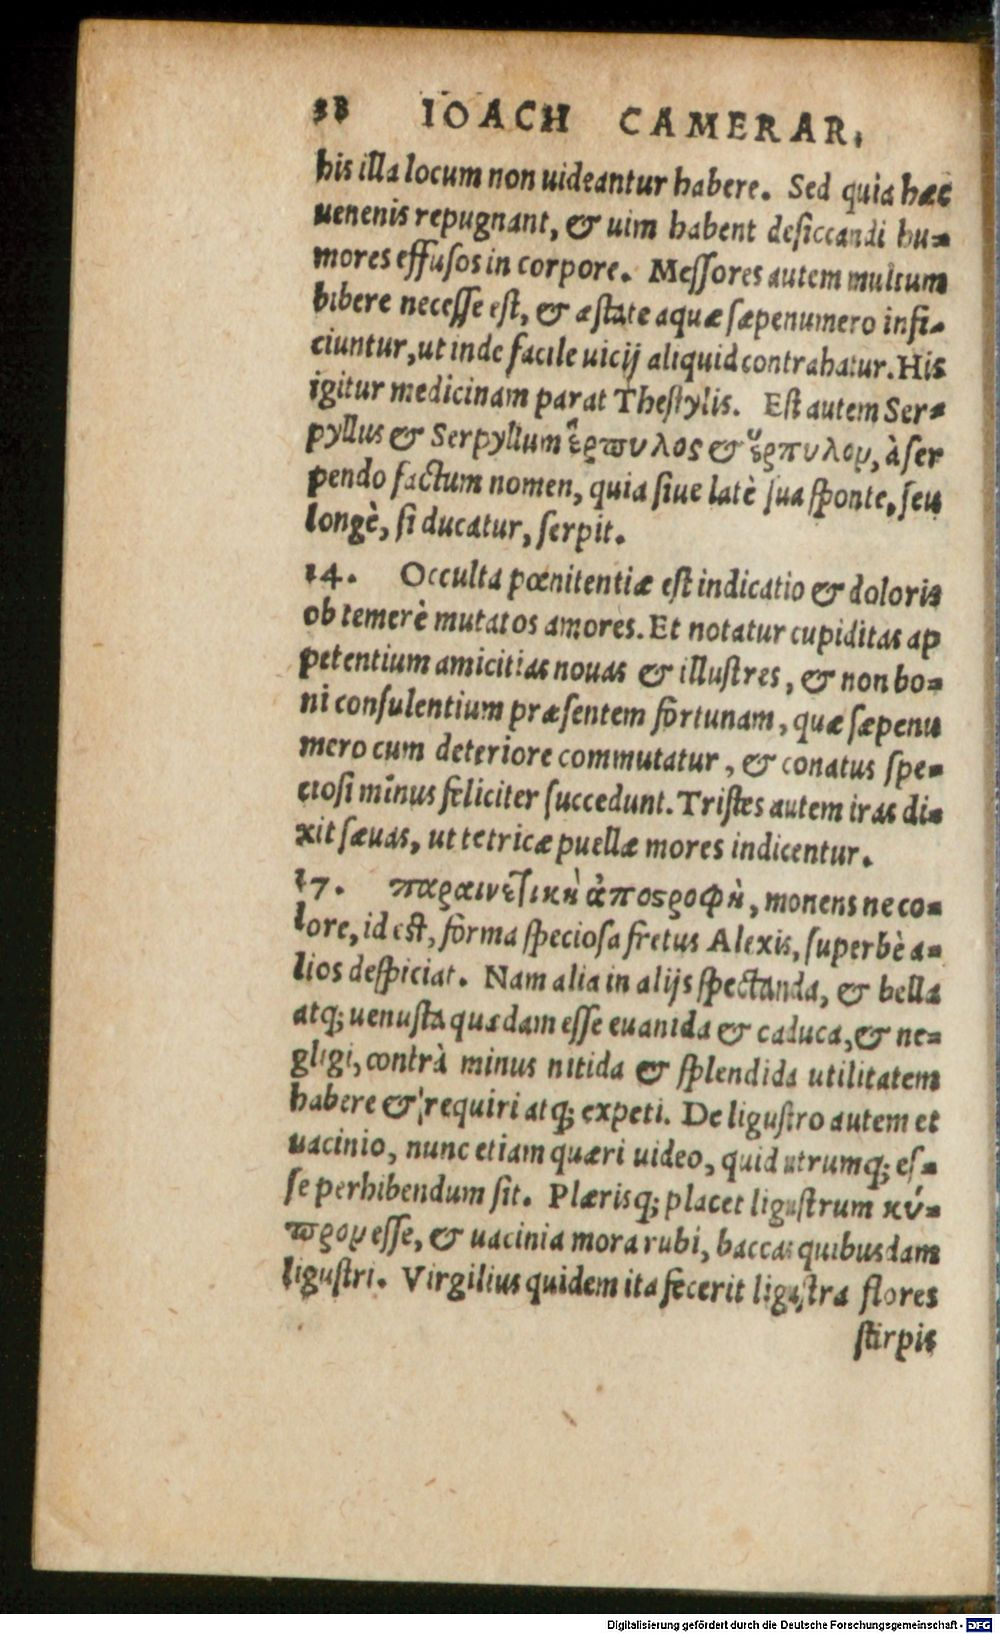 38 IOACH CAMERAR.
his illa locum non uideantur habere. Sed quia hæc
uenenis repugnant, & uim habent desiccandi hu-
mores effusos in corpore. Messores autem multum
bibere necesse est, & æstate aquæ sæpenumero infi-
ciuntur, ut inde facile uicij aliquid contrahatur. His
igitur medicinam parat Thestylis. Est autem Ser-
pyllus & Serpyllum ἕρπυλος & ἕρπυλον, à ser
pendo factum nomen, quia siue latè sua sponte, seu
longè, si ducatur, serpit.
14. Occulta pœnitentiæ est indicatio & doloris
ob temerè mutatos amores. Et notatur cupiditas ap
petentium amicitias nouas & illustres, & non bo-
ni consulentium præsentem fortunam, quæ sæpenu
mero cum deteriore commutatur, & conatus spe-
ciosi minus feliciter succedunt. Tristes autem iras di-
xit sæuas, ut tetricæ puellæ mores indicentur.
17. παραινετικὴ ἀποςροφὴ, monens ne co-
lore, id est, forma speciosa fretus Alexis, superbè a-
lios despiciat. Nam alia in alijs spectanda, & bella
atq; uenusta quædam esse euanida & caduca, & ne-
gligi, contrà minus nitida & splendida utilitatem
habere & requiri atq; expeti. De ligustro autem et
uacinio, nunc etiam quæri uideo, quid utrumq; es-
se perhibendum sit. Plærisq; placet ligustrum κύ-
προν esse, & uacinia mora rubi, baccas quibusdam
ligustri. Virgilius quidem ita fecerit ligustra flores
stirpis
Digitalisierung gefördert durch die Deutsche Forschungsgemeinschaft - DFG